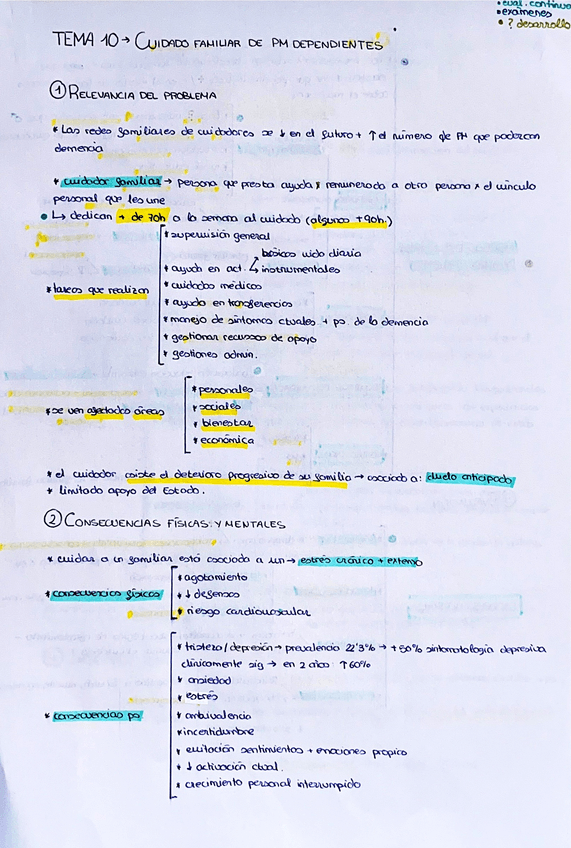 • eval. continua
• exámenes
• ? desarrollo
TEMA 10 → CUIDADO FAMILIAR DE PM DEPENDIENTES
① RELEVANCIA DEL PROBLEMA
* Las redes familiares de cuidadores se ↓ en el futuro + ↑ el número de PM que padezcan
demencia
* cuidador familiar → persona que presta ayuda remunerada a otra persona x el vínculo
personal que les une
↳ dedican + de 70h a la semana al cuidado (algunos +90h.)
* tareas que realizan
* supervisión general
* ayuda en act. básicas vida diaria
instrumentales
* cuidados médicos
* ayuda en transferencias
* manejo de síntomas ctuales + ps. de la demencia
* gestionar recursos de apoyo
* gestiones admin.
* se ven afectadas áreas
* personales
* sociales
* bienestar
* económica
* el cuidador asiste el deterioro progresivo de su familia → asociado a: duelo anticipado
* limitado apoyo del Estado.
② CONSECUENCIAS FÍSICAS Y MENTALES
* cuidar a un familiar está asociado a un → estrés crónico + extremo
* consecuencias físicas
* agotamiento
* ↓ defensas
* riesgo cardiovascular
* consecuencias ps
* tristeza / depresión → prevalencia 22'3% → +50% sintomatología depresiva
clínicamente sig → en 2 años ↑ 60%
* ansiedad
* estrés
* ambivalencia
* incertidumbre
* evitación sentimientos + emociones propias
* ↓ activación ctual.
* crecimiento personal interrumpido